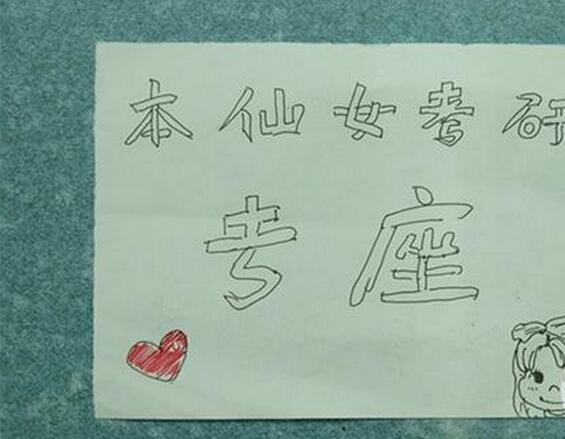 本仙女考研
专座